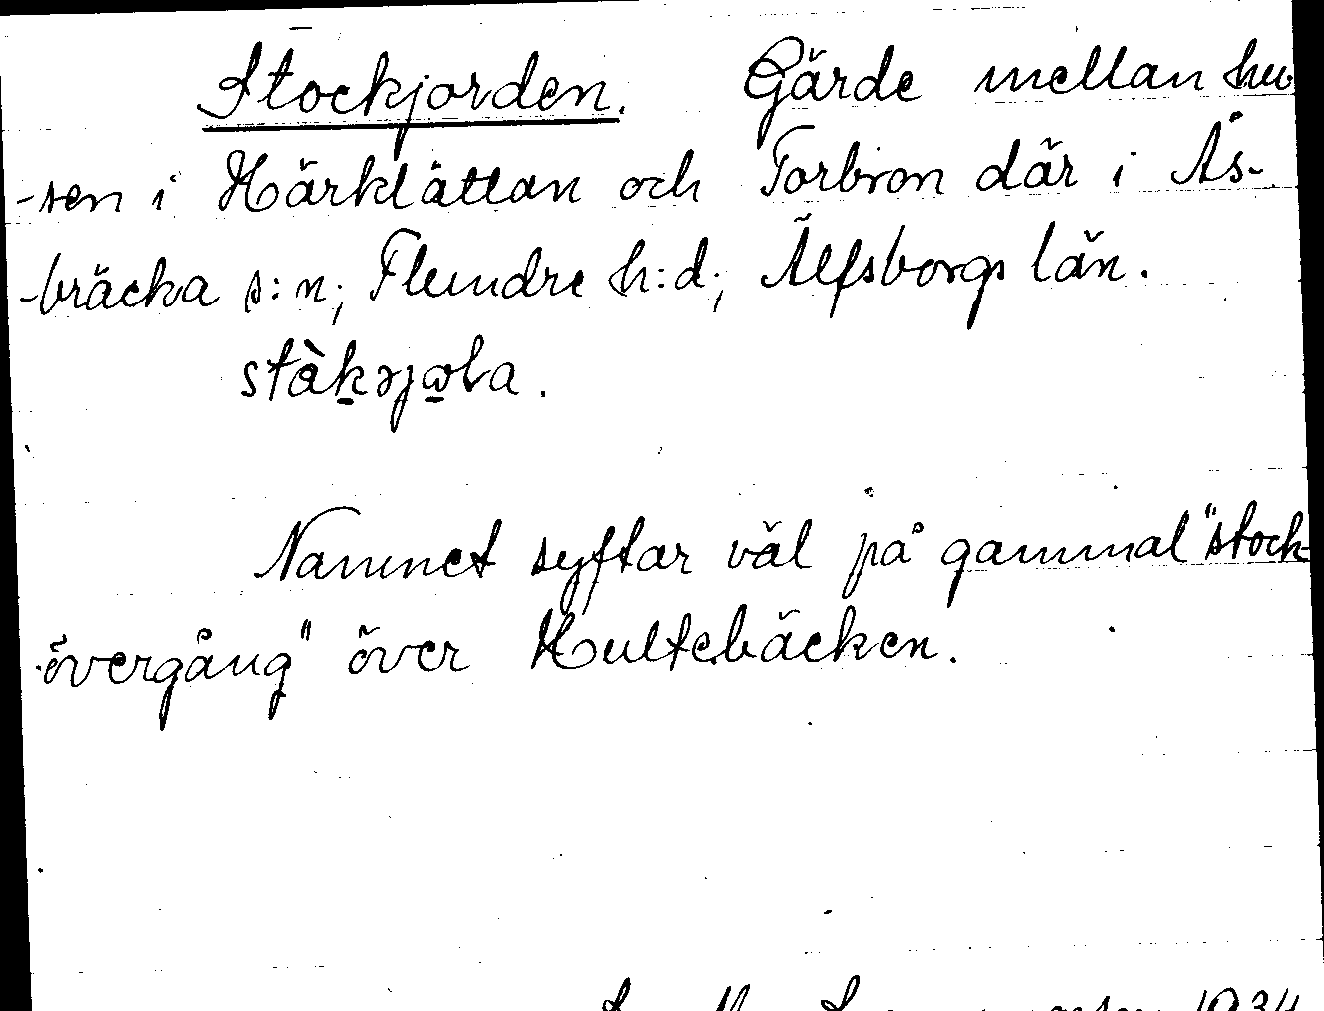 Stockjorden. Gärde mellan hu-
-sen i Härklättan och Torbron där i Ås-
-bräcka s:n; Flundre h:d; Älfsborgs län.
Namnet syftar väl på gammal "stock-
-övergång" över Hultebäcken.
1934